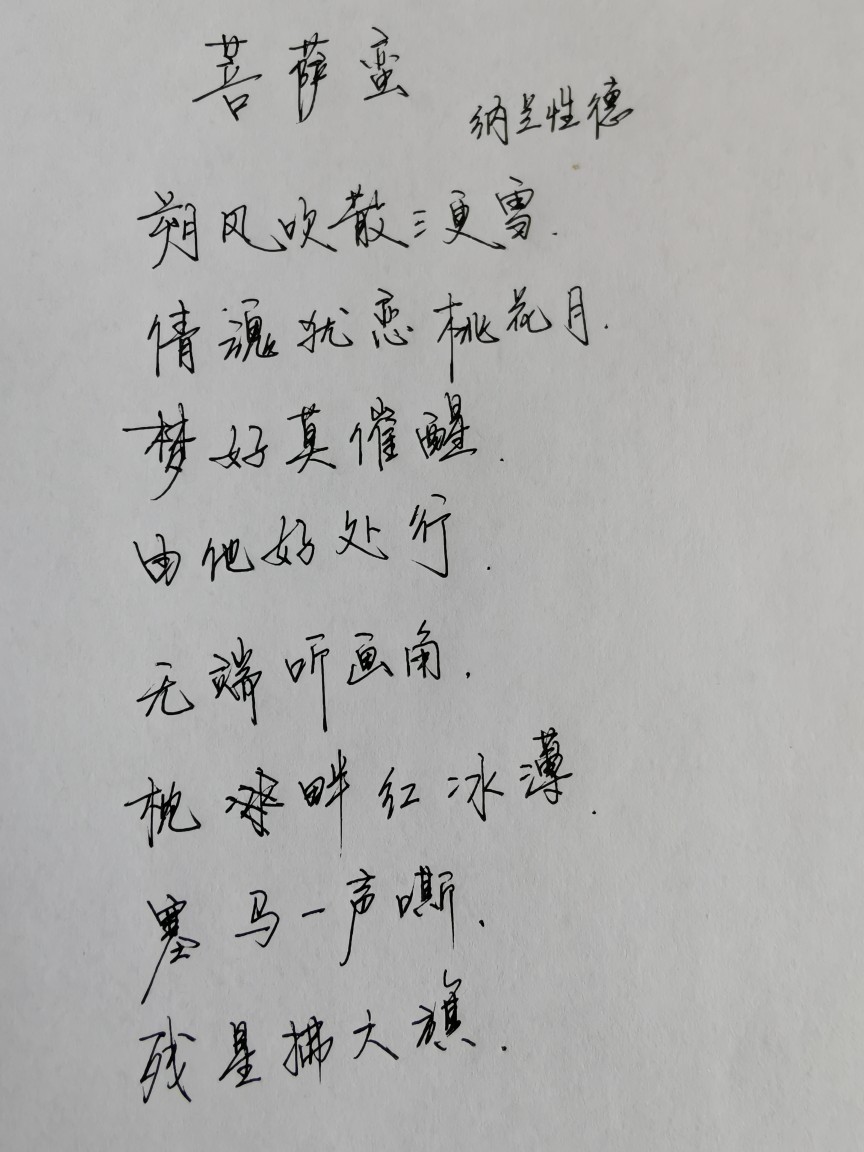 菩萨蛮
纳兰性德
朔风吹散三更雪.
倩魂犹恋桃花月.
梦好莫催醒.
由他好处行.
无端听画角.
枕畔红冰薄.
塞马一声嘶.
残星拂大旗.